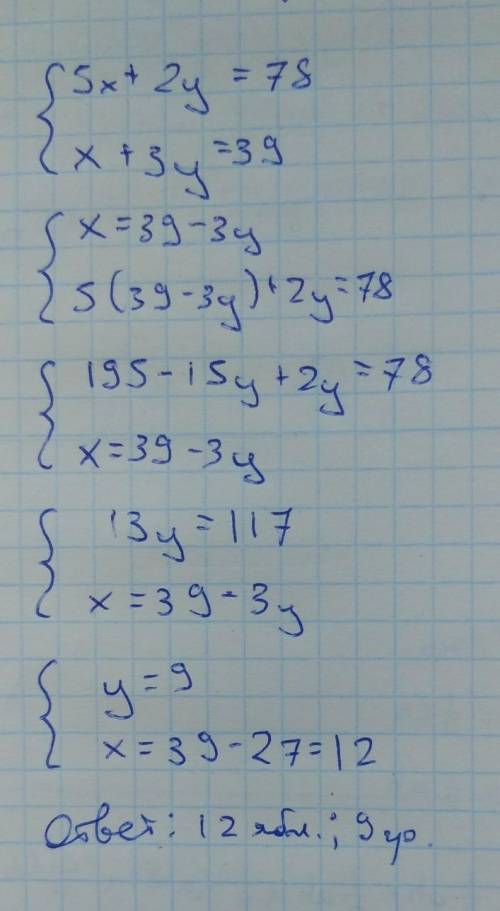 5x + 2y = 78
x + 3y = 39
x = 39 - 3y
5(39 - 3y) + 2y = 78
195 - 15y + 2y = 78
x = 39 - 3y
13y = 117
x = 39 - 3y
y = 9
x = 39 - 27 = 12
Ответ: 12 ябл.; 9 гр.